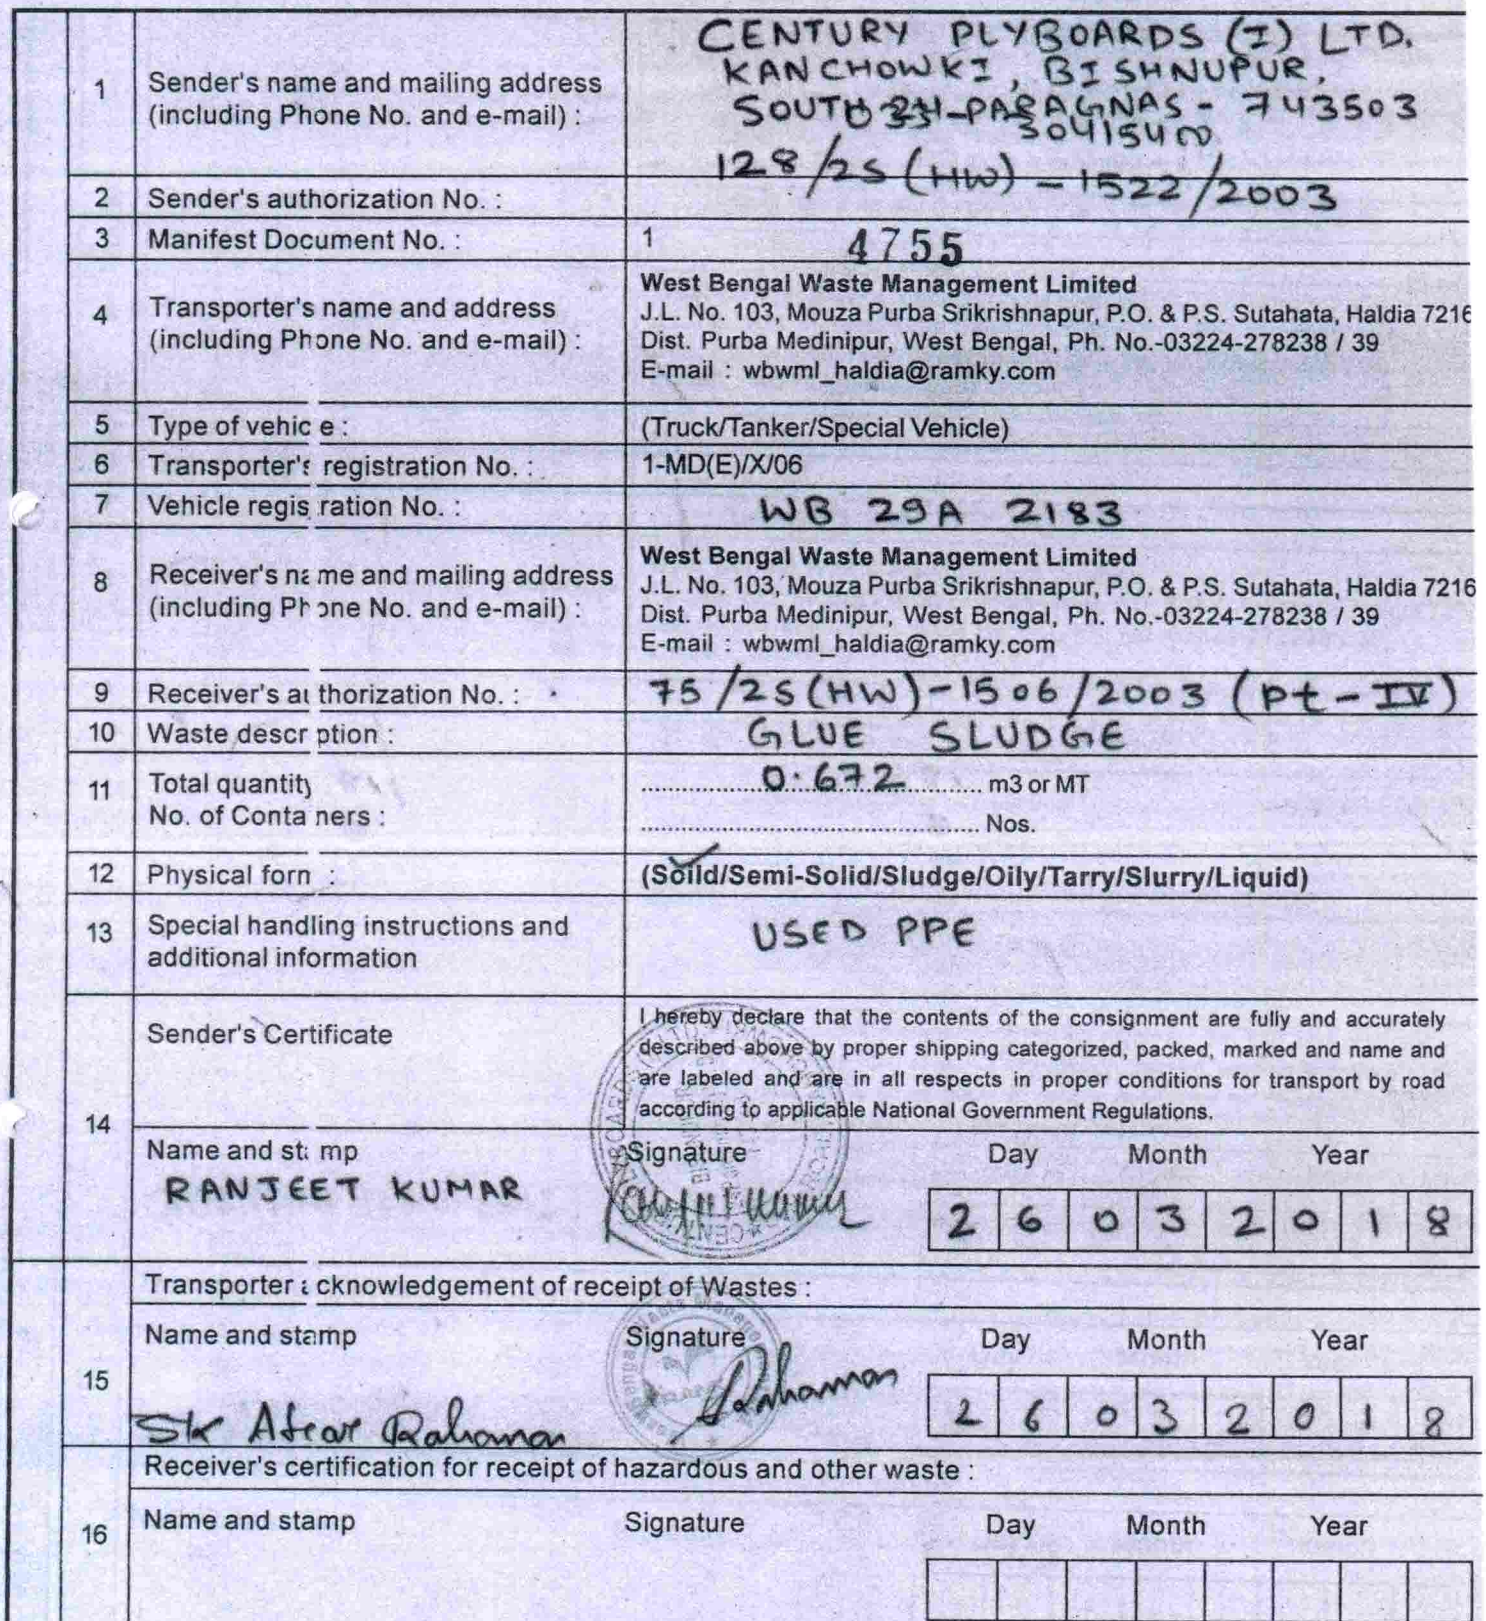 1
Sender's name and mailing address
(including Phone No. and e-mail) :
CENTURY PLYBOARDS (I) LTD.
KANCHOWKI, BISHNUPUR,
SOUTH 24-PARAGNAS - 743503
30415400
2 Sender's authorization No. : 128/2S (HW) - 1522/2003
3 Manifest Document No. : 1 4755
4
Transporter's name and address
(including Phone No. and e-mail) :
West Bengal Waste Management Limited
J.L. No. 103, Mouza Purba Srikrishnapur, P.O. & P.S. Sutahata, Haldia 7216
Dist. Purba Medinipur, West Bengal, Ph. No.-03224-278238 / 39
E-mail : wbwml_haldia@ramky.com
5 Type of vehic e : (Truck/Tanker/Special Vehicle)
6 Transporter's registration No. : 1-MD(E)/X/06
7 Vehicle regis ration No. : WB 29A 2183
8
Receiver's name and mailing address
(including Phone No. and e-mail) :
West Bengal Waste Management Limited
J.L. No. 103, Mouza Purba Srikrishnapur, P.O. & P.S. Sutahata, Haldia 7216
Dist. Purba Medinipur, West Bengal, Ph. No.-03224-278238 / 39
E-mail : wbwml_haldia@ramky.com
9 Receiver's authorization No. : 75/2S(HW)-1506/2003 (pt-IV)
10 Waste descr ption : GLUE SLUDGE
11 Total quantity 0.672 m3 or MT
No. of Conta ners : Nos.
12 Physical form : (Solid/Semi-Solid/Sludge/Oily/Tarry/Slurry/Liquid)
13
Special handling instructions and
additional information
USED PPE
14
Sender's Certificate
I hereby declare that the contents of the consignment are fully and accurately
described above by proper shipping categorized, packed, marked and name and
are labeled and are in all respects in proper conditions for transport by road
according to applicable National Government Regulations.
Name and stamp Signature Day Month Year
RANJEET KUMAR
2 6 0 3 2 0 1 8
Transporter acknowledgement of receipt of Wastes :
15
Name and stamp Signature Day Month Year
Rahaman
2 6 0 3 2 0 1 8
SK Atear Rahaman
Receiver's certification for receipt of hazardous and other waste :
16
Name and stamp Signature Day Month Year